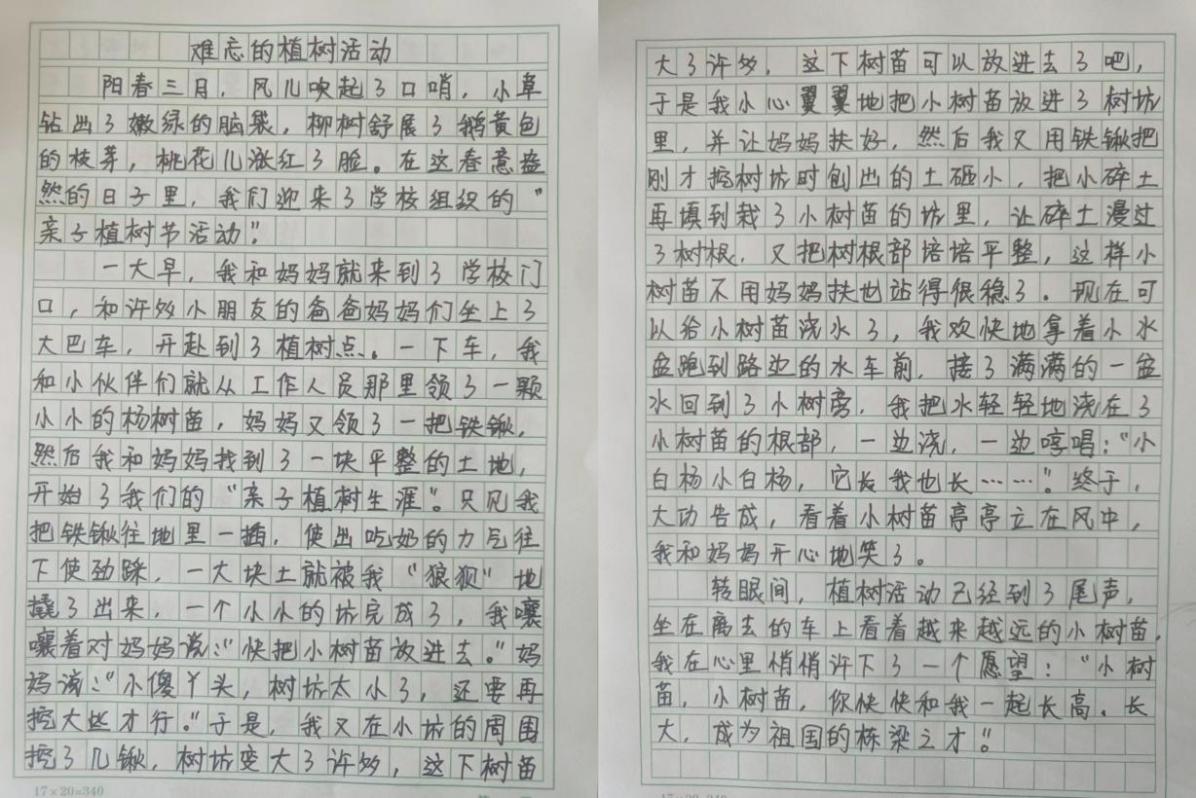 难忘的植树活动
阳春三月，风儿吹起了口哨，小草
钻出了嫩绿的脑袋，柳树舒展了鹅黄色
的枝芽，桃花儿涨红了脸。在这春意盎
然的日子里，我们迎来了学校组织的“
亲子植树节活动”。
一大早，我和妈妈就来到了学校门
口，和许多小朋友的爸爸妈妈们坐上了
大巴车，开赴到了植树点。一下车，我
和小伙伴们就从工作人员那里领了一颗
小小的杨树苗，妈妈又领了一把铁锹，
然后我和妈妈找到了一块平整的土地，
开始了我们的“亲子植树生涯”。只见我
把铁锹往地里一插，使出吃奶的力气往
下使劲踩，一大块土就被我“狼狈”地
撬了出来，一个小小的坑完成了，我嚷
嚷着对妈妈说：“快把小树苗放进去。”妈
妈说：“小傻丫头，树坑太小了，还要再
挖大些才行。”于是，我又在小坑的周围
挖了几锹，树坑变大了许多，这下树苗
17×20=340
大了许多，这下树苗可以放进去了吧，
于是我小心翼翼地把小树苗放进了树坑
里，并让妈妈扶好，然后我又用铁锹把
刚才挖树坑时刨出的土砸小，把小碎土
再填到栽了小树苗的坑里，让碎土漫过
了树根，又把树根部培培平整，这样小
树苗不用妈妈扶也站得很稳了。现在可
以给小树苗浇水了，我欢快地拿着小水
盆跑到路边的水车前，接了满满的一盆
水回到了小树旁，我把水轻轻地浇在了
小树苗的根部，一边浇，一边哼唱：“小
白杨小白杨，它长我也长……”。终于，
大功告成，看着小树苗亭亭立在风中，
我和妈妈开心地笑了。
转眼间，植树活动已经到了尾声，
坐在离去的车上看着越来越远的小树苗，
我在心里悄悄许下了一个愿望：“小树
苗，小树苗，你快快和我一起长高、长
大，成为祖国的栋梁之才”。